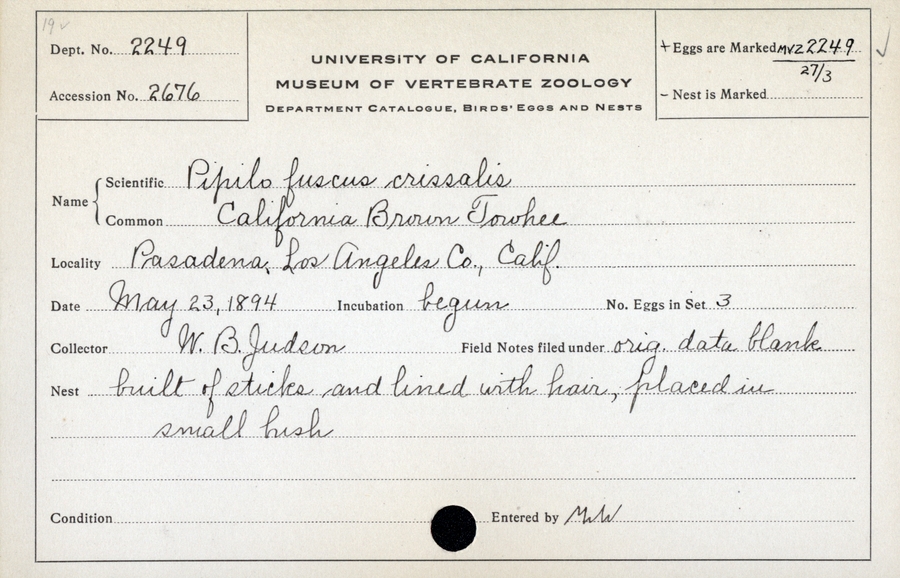 19 ✓
Dept. No. 2249
Accession No. 2676
UNIVERSITY OF CALIFORNIA
MUSEUM OF VERTEBRATE ZOOLOGY
DEPARTMENT CATALOGUE, BIRDS' EGGS AND NESTS
+ Eggs are Marked MVZ 2249
27/3
✓
– Nest is Marked
Name
Scientific Pipilo fuscus crissalis
Common California Brown Towhee
Locality Pasadena, Los Angeles Co., Calif.
Date May 23, 1894 Incubation begun No. Eggs in Set 3
Collector W. B. Judson Field Notes filed under orig. data blank
Nest built of sticks and lined with hair, placed in
small bush
Condition Entered by